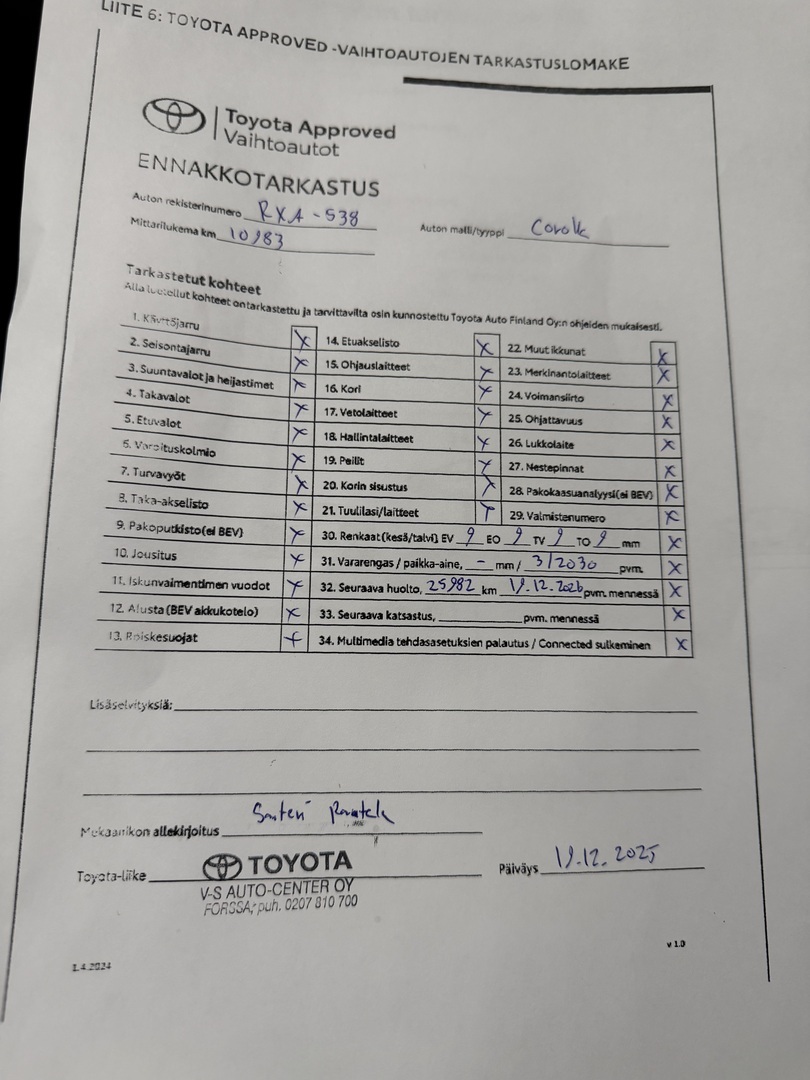 LIITE 6: TOYOTA APPROVED -VAIHTOAUTOJEN TARKASTUSLOMAKE
Toyota Approved
Vaihtoautot
ENNAKKOTARKASTUS
Auton rekisterinumero RXA-538
Mittarilukema km 10983
Auton malli/tyyppi Corolla
Tarkastetut kohteet
Alla luetellut kohteet on tarkastettu ja tarvittavilta osin kunnostettu Toyota Auto Finland Oy:n ohjeiden mukaisesti.
1. Käyttöjarru X
2. Seisontajarru X
3. Suuntavalot ja heijastimet X
4. Takavalot X
5. Etuvalot X
6. Varoituskolmio X
7. Turvavyöt X
8. Taka-akselisto X
9. Pakoputkisto(ei BEV) X
10. Jousitus X
11. Iskunvaimentimen vuodot X
12. Alusta (BEV akkukotelo) X
13. Roiskesuojat X
14. Etuakselisto X
15. Ohjauslaitteet X
16. Kori X
17. Vetolaitteet X
18. Hallintalaitteet X
19. Peilit X
20. Korin sisustus X
21. Tuulilasi/laitteet X
22. Muut ikkunat X
23. Merkinantolaitteet X
24. Voimansiirto X
25. Ohjattavuus X
26. Lukkolaite X
27. Nestepinnat X
28. Pakokaasuanalyysi(ei BEV) X
29. Valmistenumero X
30. Renkaat (kesä/talvi) EV 9 EO 9 TV 9 TO 9 mm X
31. Vararengas / paikka-aine, - mm / 3/2030 pvm. X
32. Seuraava huolto, 25982 km 19.12.2026 pvm. mennessä X
33. Seuraava katsastus, pvm. mennessä X
34. Multimedia tehdasasetuksien palautus / Connected sulkeminen X
Lisäselvityksiä:
Mekaanikon allekirjoitus Santeri
Toyota-liike TOYOTA
V-S AUTO-CENTER OY
FORSSA, puh. 0207 810 700
Päiväys 19.12.2025
v 1.0
1.4.2024